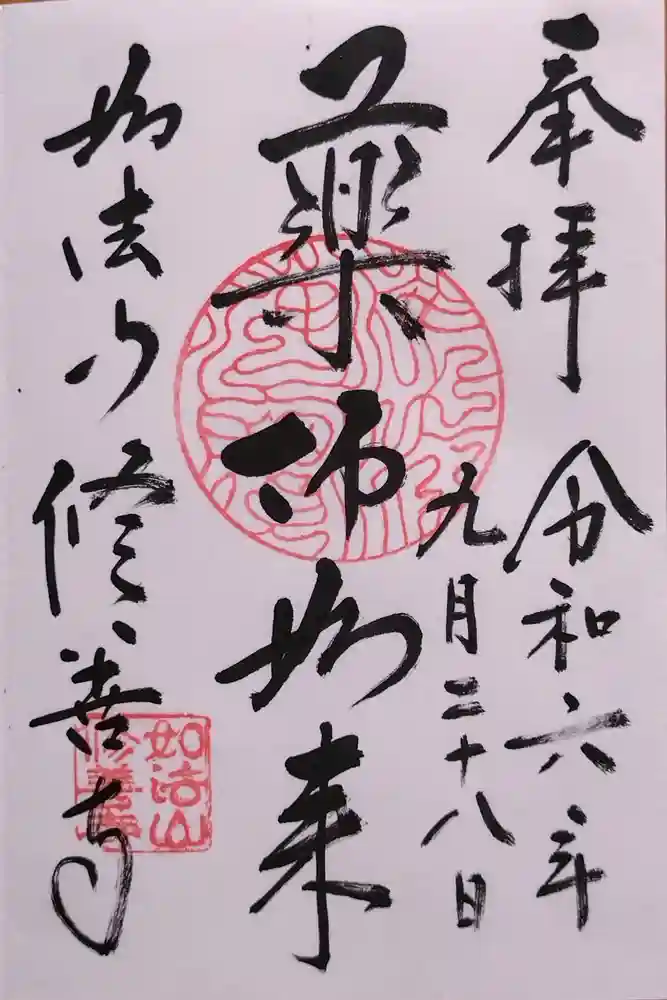 奉拝
令和六年
九月二十八日
薬師如来
如法山
修善寺
如法山
修善寺